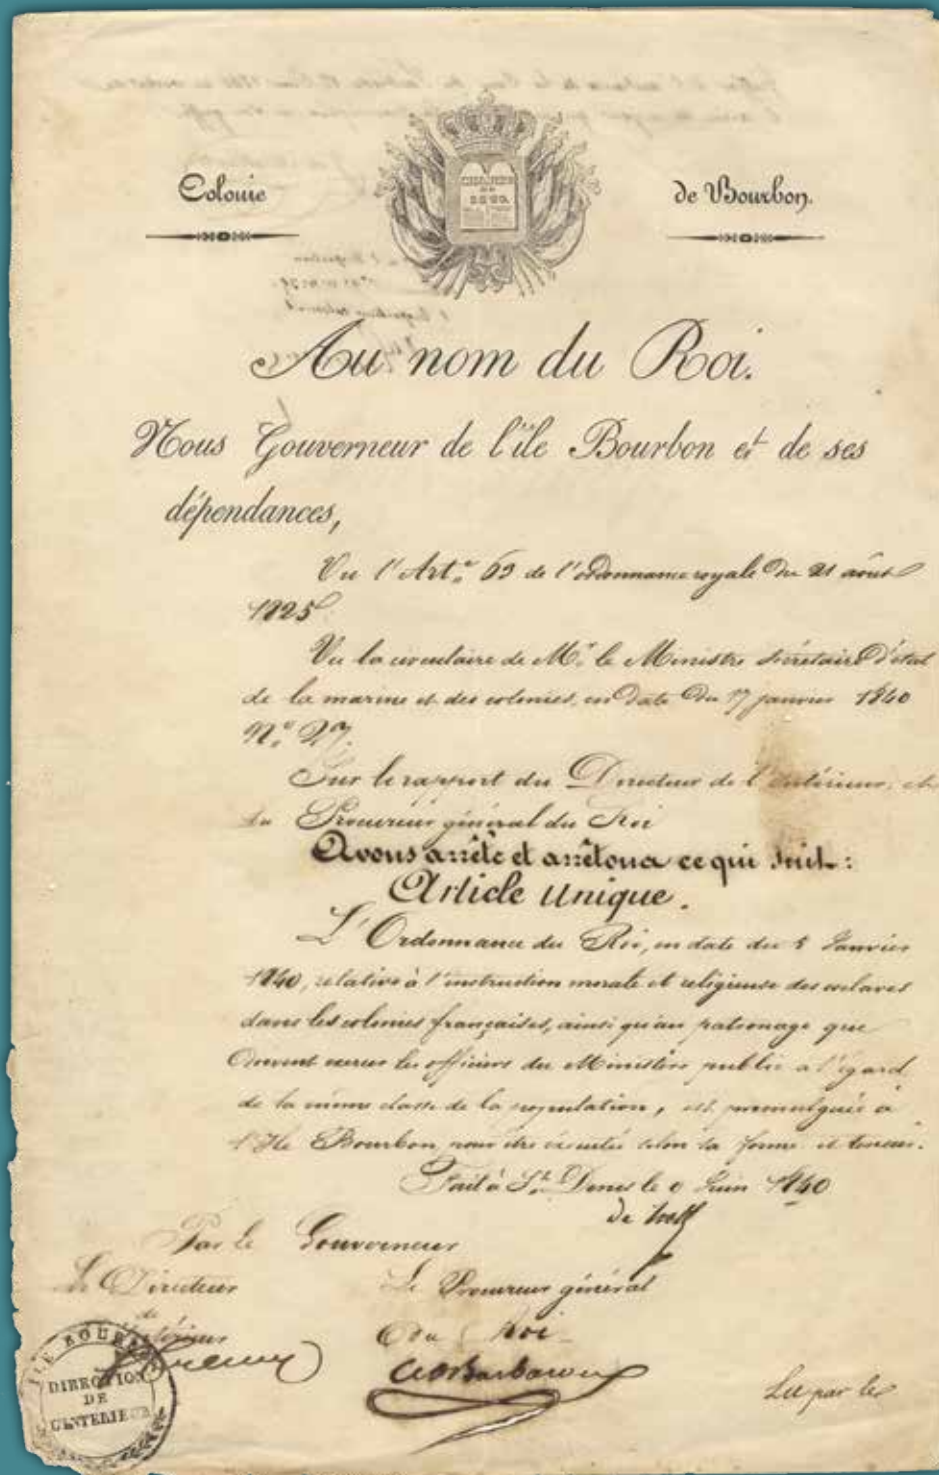 Colonie
CHARTE
DE
1830
de Bourbon.
Au nom du Roi.
Nous Gouverneur de l'île Bourbon et de ses
dépendances,
Vu l'Art.e 63 de l'ordonnance royale du 21 août
1825
Vu la circulaire de Mr. le Ministre secrétaire d'état
de la marine et des colonies, en date du 17 janvier 1840
No. 27.
Sur le rapport du Directeur de l'intérieur, et
du Procureur général du Roi
Avons arrêté et arrêtons ce qui suit :
Article Unique.
L'Ordonnance du Roi, en date du 5 Janvier
1840, relative à l'instruction morale et religieuse des esclaves
dans les colonies françaises, ainsi qu'au patronage que
doivent exercer les officiers du Ministère public à l'égard
de la même classe de la population, est promulguée à
l'Ile Bourbon pour être exécutée selon sa forme et teneur.
Fait à St. Denis le Juin 1840
de hell
Par le Gouverneur
Le Directeur
de
l'intérieur
Le Procureur général
du Roi
ILE BOURBON
DIRECTION
DE
L'INTERIEUR
Lu par le